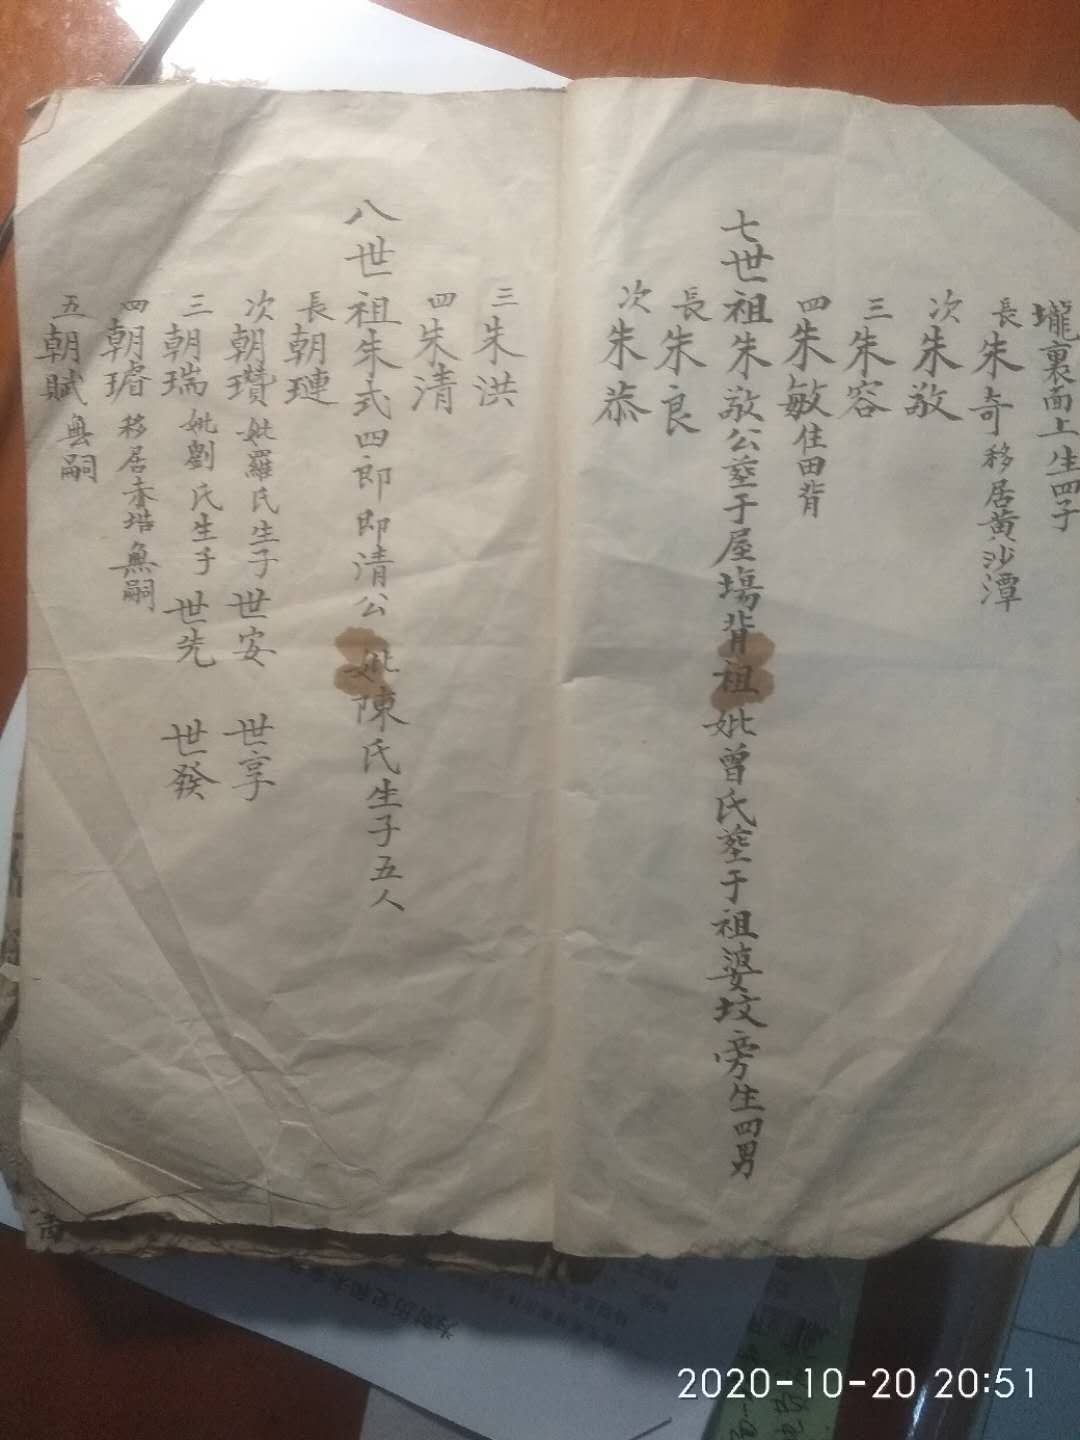 壠裏面上生四子
長朱奇移居黃沙潭
次朱敬
三朱容
四朱敏住田背
七世祖朱敬公塟于屋塲背祖妣曾氏塟于祖婆坟旁生四男
長朱良
次朱恭
三朱洪
四朱清
八世祖朱式四郎即清公妣陳氏生子五人
長朝璉
次朝瓚妣羅氏生子世安 世享
三朝瑞妣劉氏生子世先 世發
四朝璿移居香塔無嗣
五朝賦無嗣
2020-10-20 20:51